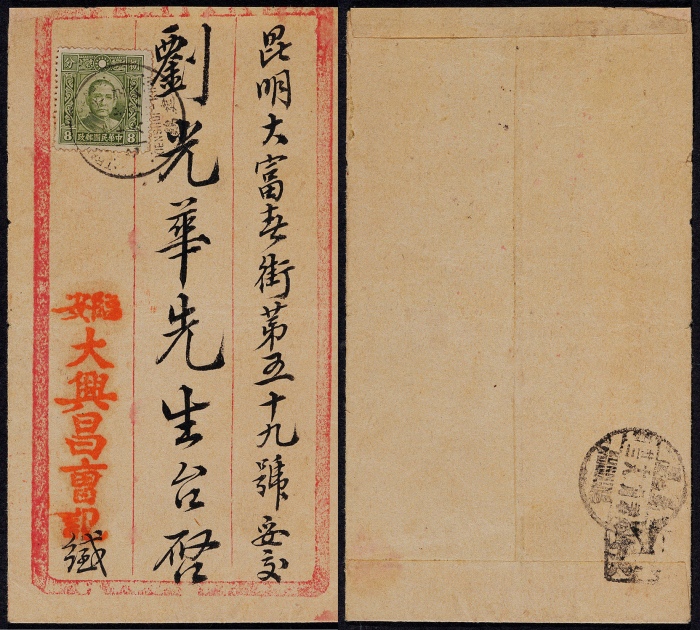 昆明大富春街第五十九號妥交
劉光華先生台啓
中華民國郵政
8 8
分
臨安
大興昌書記
緘
KUNMING